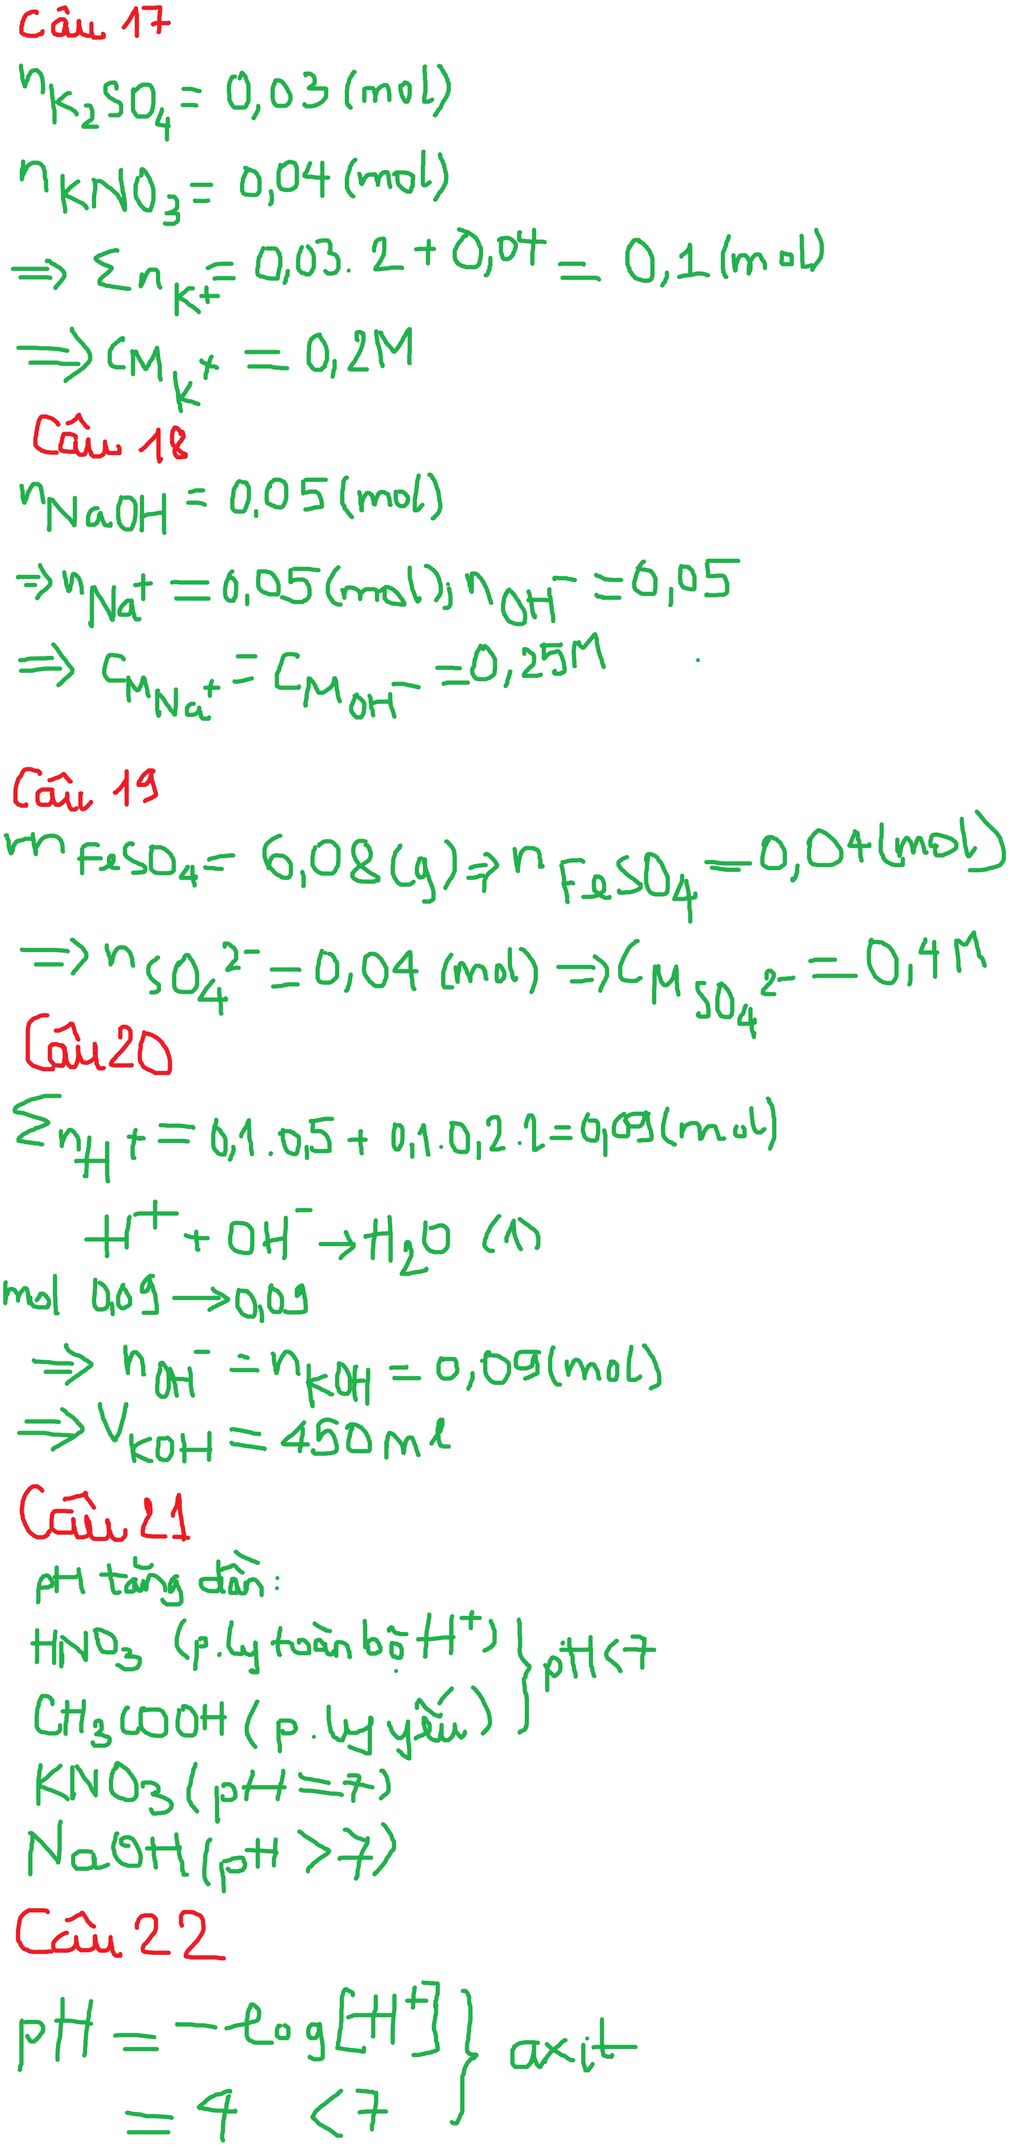 Câu 17
n K₂SO₄ = 0,03 (mol)
n KNO₃ = 0,04 (mol)
⇒ Σ n K⁺ = 0,03. 2 + 0,04 = 0,1 (mol)
⇒ CM K⁺ = 0,2M
Câu 18
n NaOH = 0,05 (mol)
⇒ n Na⁺ = 0,05 (mol); n OH⁻ = 0,05
⇒ CM Na⁺ = CM OH⁻ = 0,25M
Câu 19
m FeSO₄ = 6,08 (g) ⇒ n FeSO₄ = 0,04 (mol)
⇒ n SO₄²⁻ = 0,04 (mol) ⇒ CM SO₄²⁻ = 0,4M
Câu 20
Σ n H⁺ = 0,1.0,5 + 0,1.0,2.2 = 0,09 (mol)
H⁺ + OH⁻ → H₂O (1)
mol 0,09 → 0,09
⇒ n OH⁻ = n KOH = 0,09 (mol)
⇒ V KOH = 450 ml
Câu 21
pH tăng dần:
HNO₃ (p.ly toàn bộ H⁺) } pH < 7
CH₃COOH (p.ly yếu)
KNO₃ (pH = 7)
NaOH (pH > 7)
Câu 22
pH = -log[H⁺] } axit
= 4 < 7